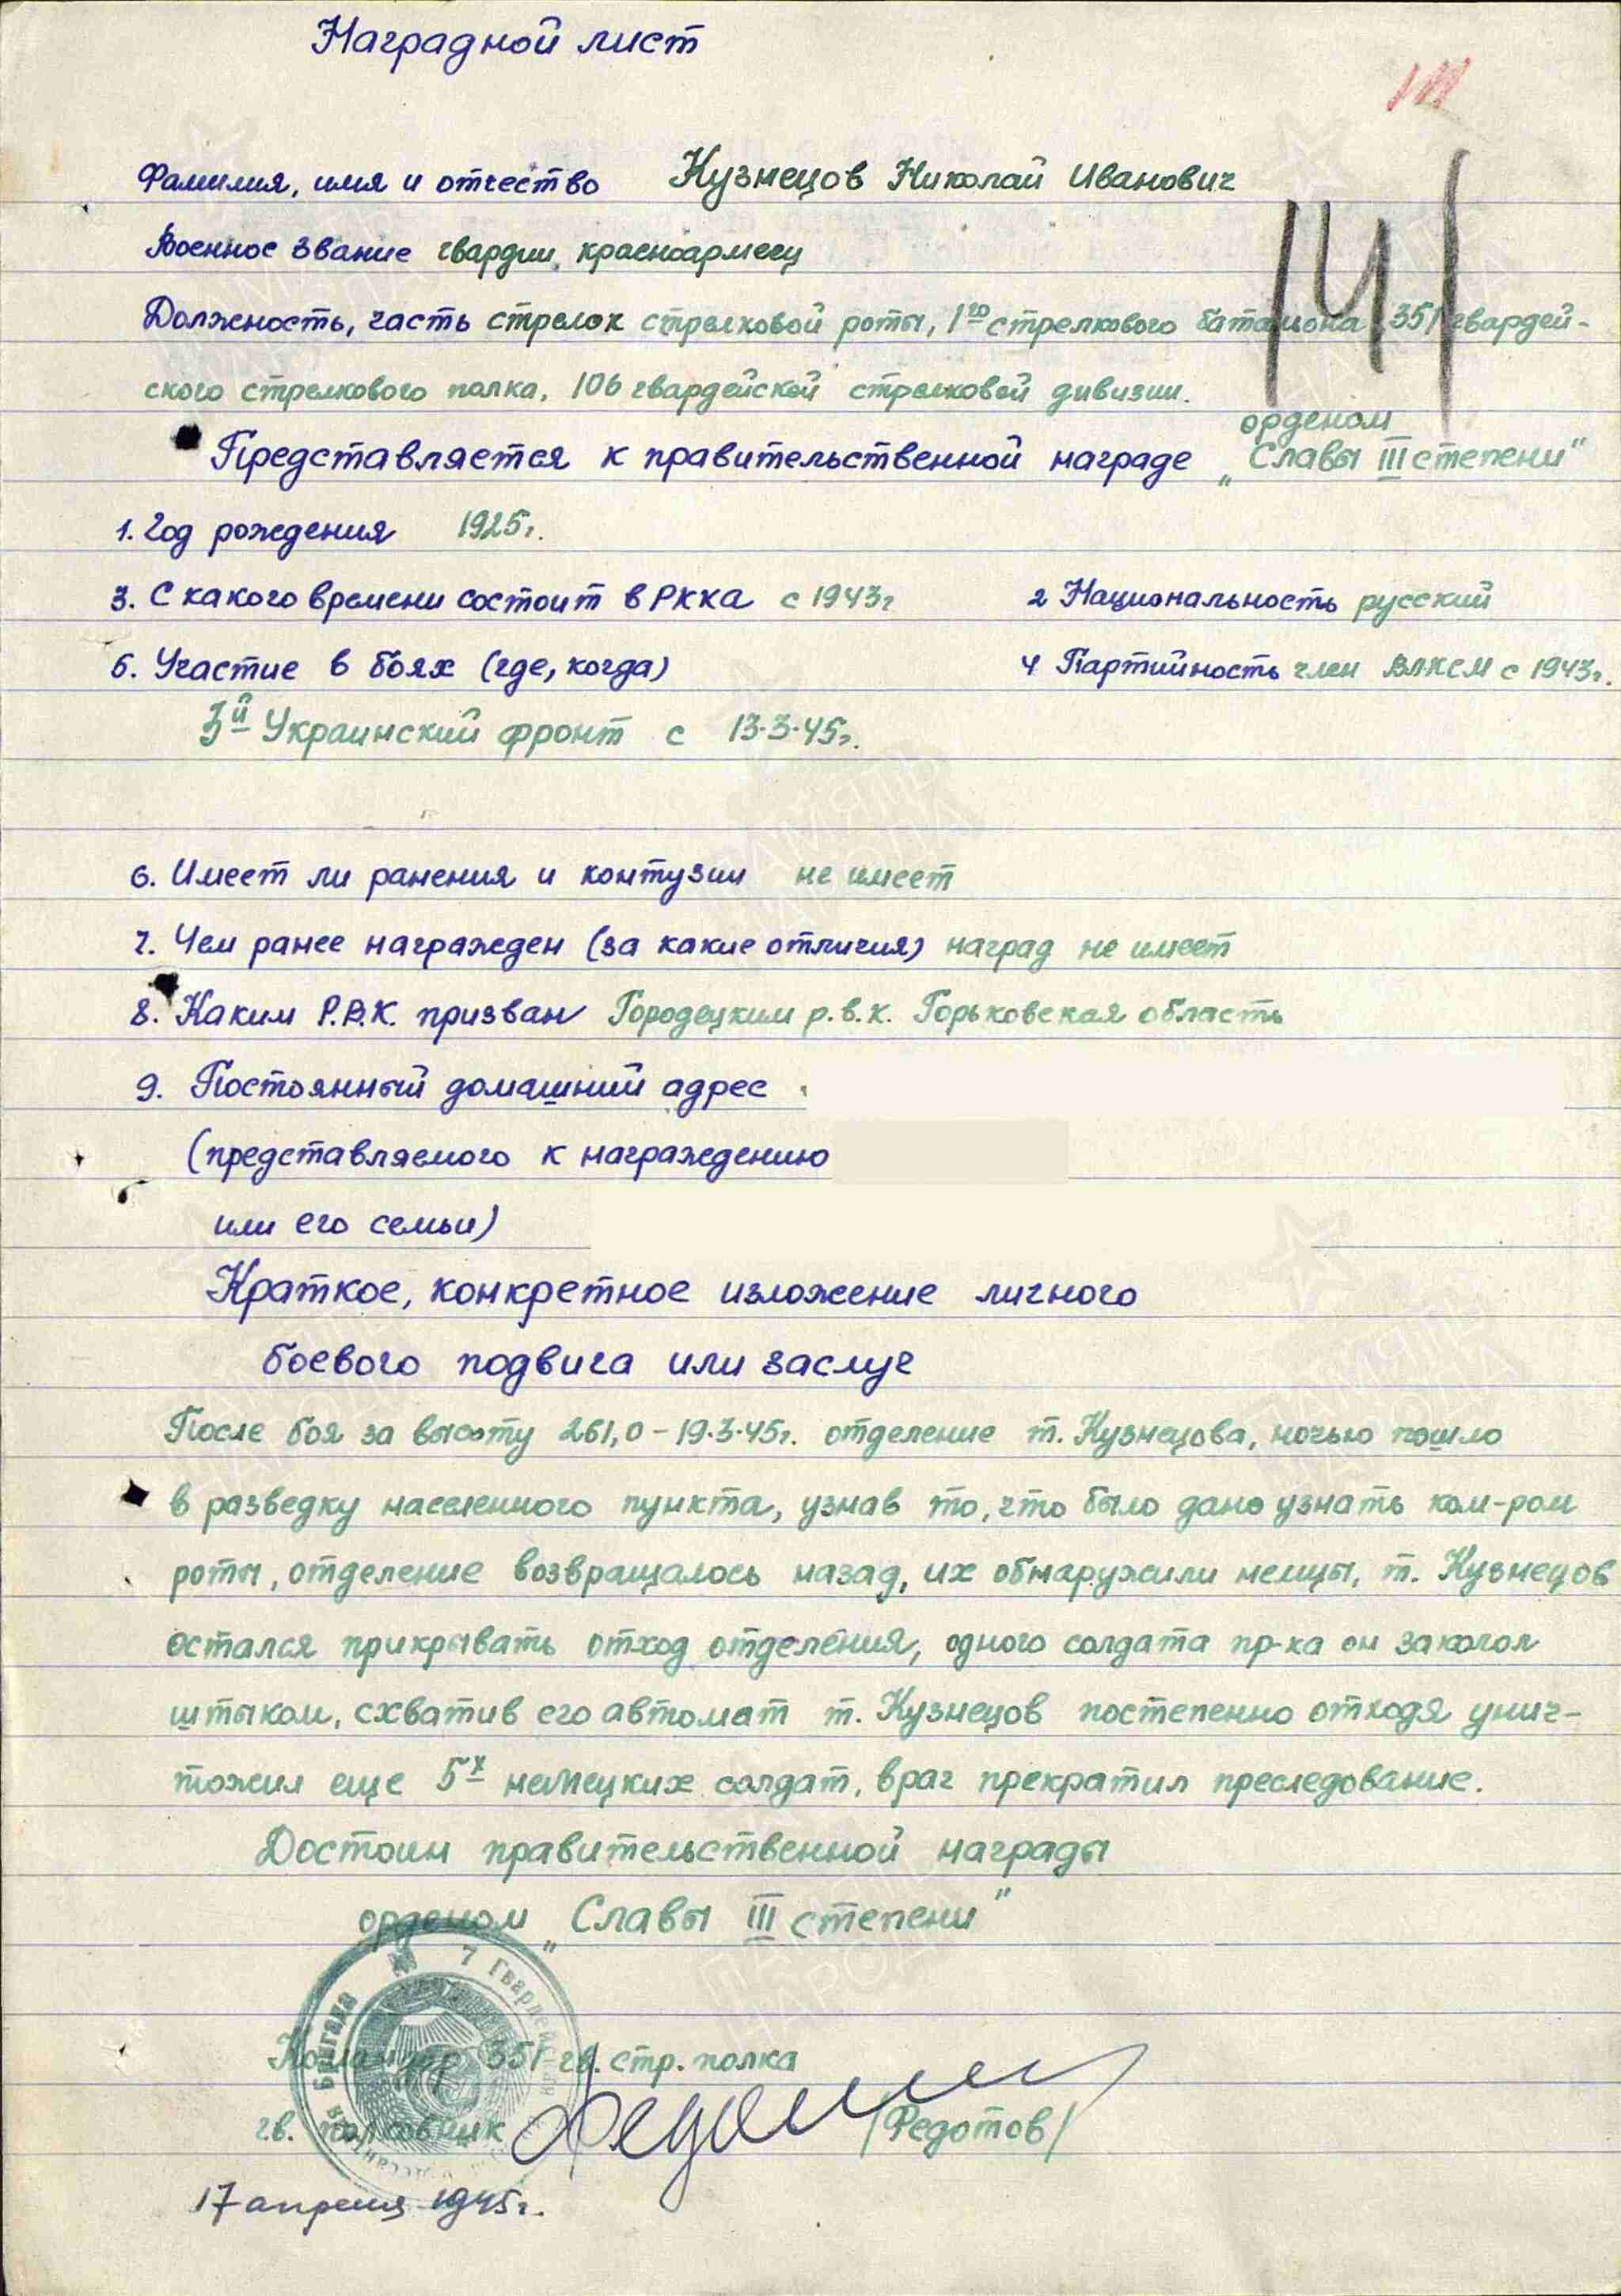 Наградной лист
141
Фамилия, имя и отчество Кузнецов Николай Иванович
Военное звание гвардии красноармеец
Должность, часть стрелок стрелковой роты, 1го стрелкового батальона 351 гвардей-
ского стрелкового полка, 106 гвардейской стрелковой дивизии.
орденом
Представляется к правительственной награде „Славы III степени"
1. Год рождения 1925г.
3. С какого времени состоит в РККА с 1943г 2 Национальность русский
5. Участие в боях (где, когда) 4 Партийность член ВЛКСМ с 1943г.
3й Украинский фронт с 13.3.45г.
6. Имеет ли ранения и контузии не имеет
7. Чем ранее награжден (за какие отличия) наград не имеет
8. Каким Р.В.К. призван Городецким р.в.к. Горьковская область
9. Постоянный домашний адрес
(представляемого к награждению
или его семьи)
Краткое, конкретное изложение личного
боевого подвига или заслуг
После боя за высоту 261,0 – 19.3.45г. отделение т. Кузнецова, ночью пошло
в разведку населенного пункта, узнав то, что было дано узнать ком-ром
роты, отделение возвращалось назад, их обнаружили немцы, т. Кузнецов
остался прикрывать отход отделения, одного солдата пр-ка он заколол
штыком, схватив его автомат т. Кузнецов постепенно отходя унич-
тожил еще 5х немецких солдат, враг прекратил преследование.
Достоин правительственной награды
орденом „Славы III степени"
7 Гвардейская бригада
Командир 351 гв. стр. полка
гв. полковник /Федотов/
17 апреля 1945г.
ПАМЯТЬ НАРОДА